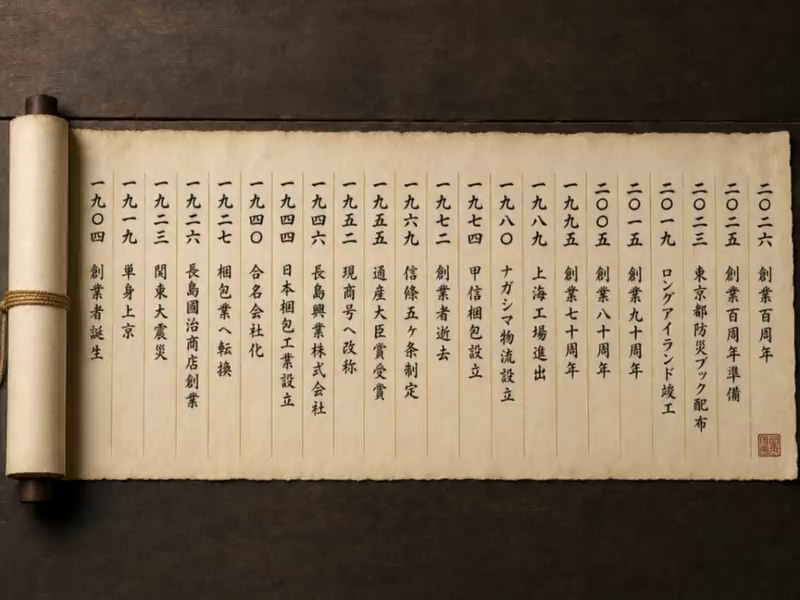 二〇二六 創業百周年
二〇二五 創業百周年準備
二〇二三 東京都防災ブック配布
二〇一九 ロングアイランド竣工
二〇一五 創業九十周年
二〇〇五 創業八十周年
一九九五 創業七十周年
一九八九 上海工場進出
一九八〇 ナガシマ物流設立
一九七四 甲信梱包設立
一九七二 創業者逝去
一九六九 信條五ヶ条制定
一九五五 通産大臣賞受賞
一九五二 現商号へ改称
一九四六 長島興業株式会社
一九四四 日本梱包工業設立
一九四〇 合名会社化
一九二七 梱包業へ転換
一九二六 長島國治商店創業
一九二三 関東大震災
一九一九 単身上京
一九〇四 創業者誕生